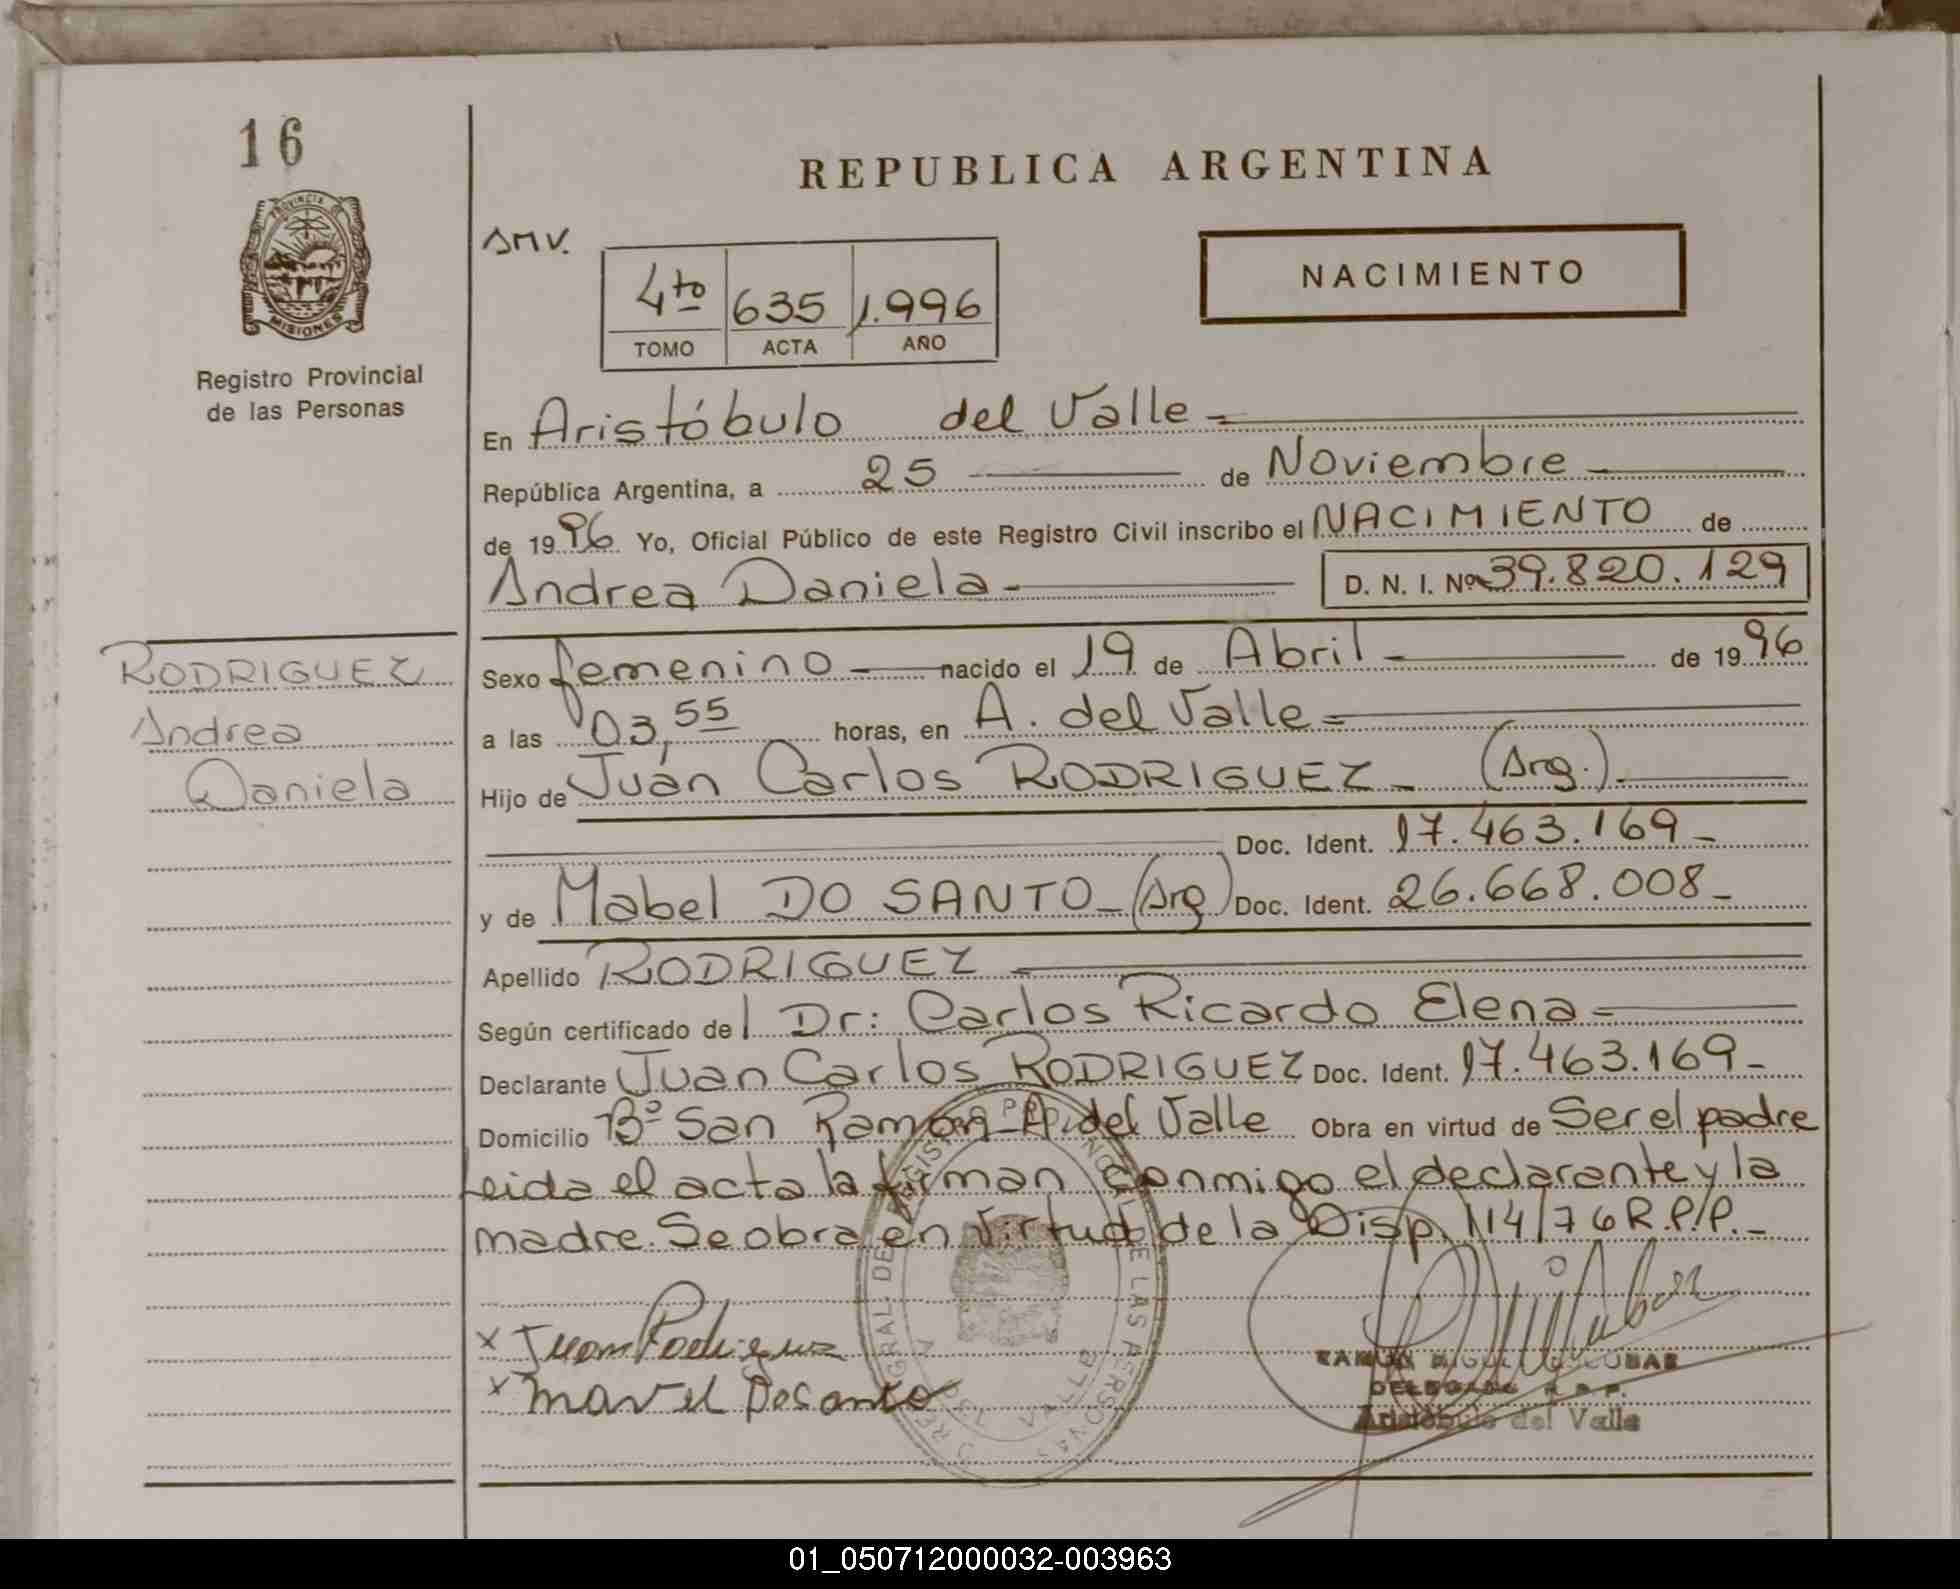 16
PROVINCIA DE
MISIONES
Registro Provincial
de las Personas
REPUBLICA ARGENTINA
SMV.
4to 635 1.996
TOMO ACTA AÑO
NACIMIENTO
En Aristóbulo del Valle
República Argentina, a 25 de Noviembre
de 1996 Yo, Oficial Público de este Registro Civil inscribo el NACIMIENTO de
Andrea Daniela D. N. I. Nº 39.820.129
RODRIGUEZ
Andrea
Daniela
Sexo femenino nacido el 19 de Abril de 1996
a las 03,55 horas, en A. del Valle
Hijo de Juan Carlos RODRIGUEZ (Arg.)
Doc. Ident. 17.463.169
y de Mabel DO SANTO (Arg) Doc. Ident. 26.668.008
Apellido RODRIGUEZ
Según certificado del Dr: Carlos Ricardo Elena
Declarante Juan Carlos RODRIGUEZ Doc. Ident. 17.463.169
Domicilio Bº San Ramon A. del Valle Obra en virtud de Ser el padre
Leida el acta la firman conmigo el declarante y la
madre. Se obra en virtud de la Disp. 114/76 R.P.P.
x Juan Rodriguez
x Mavel Dosanto
ESCOBAR
DELEGADO R.P.P.
Aristóbulo del Valle
01_050712000032-003963